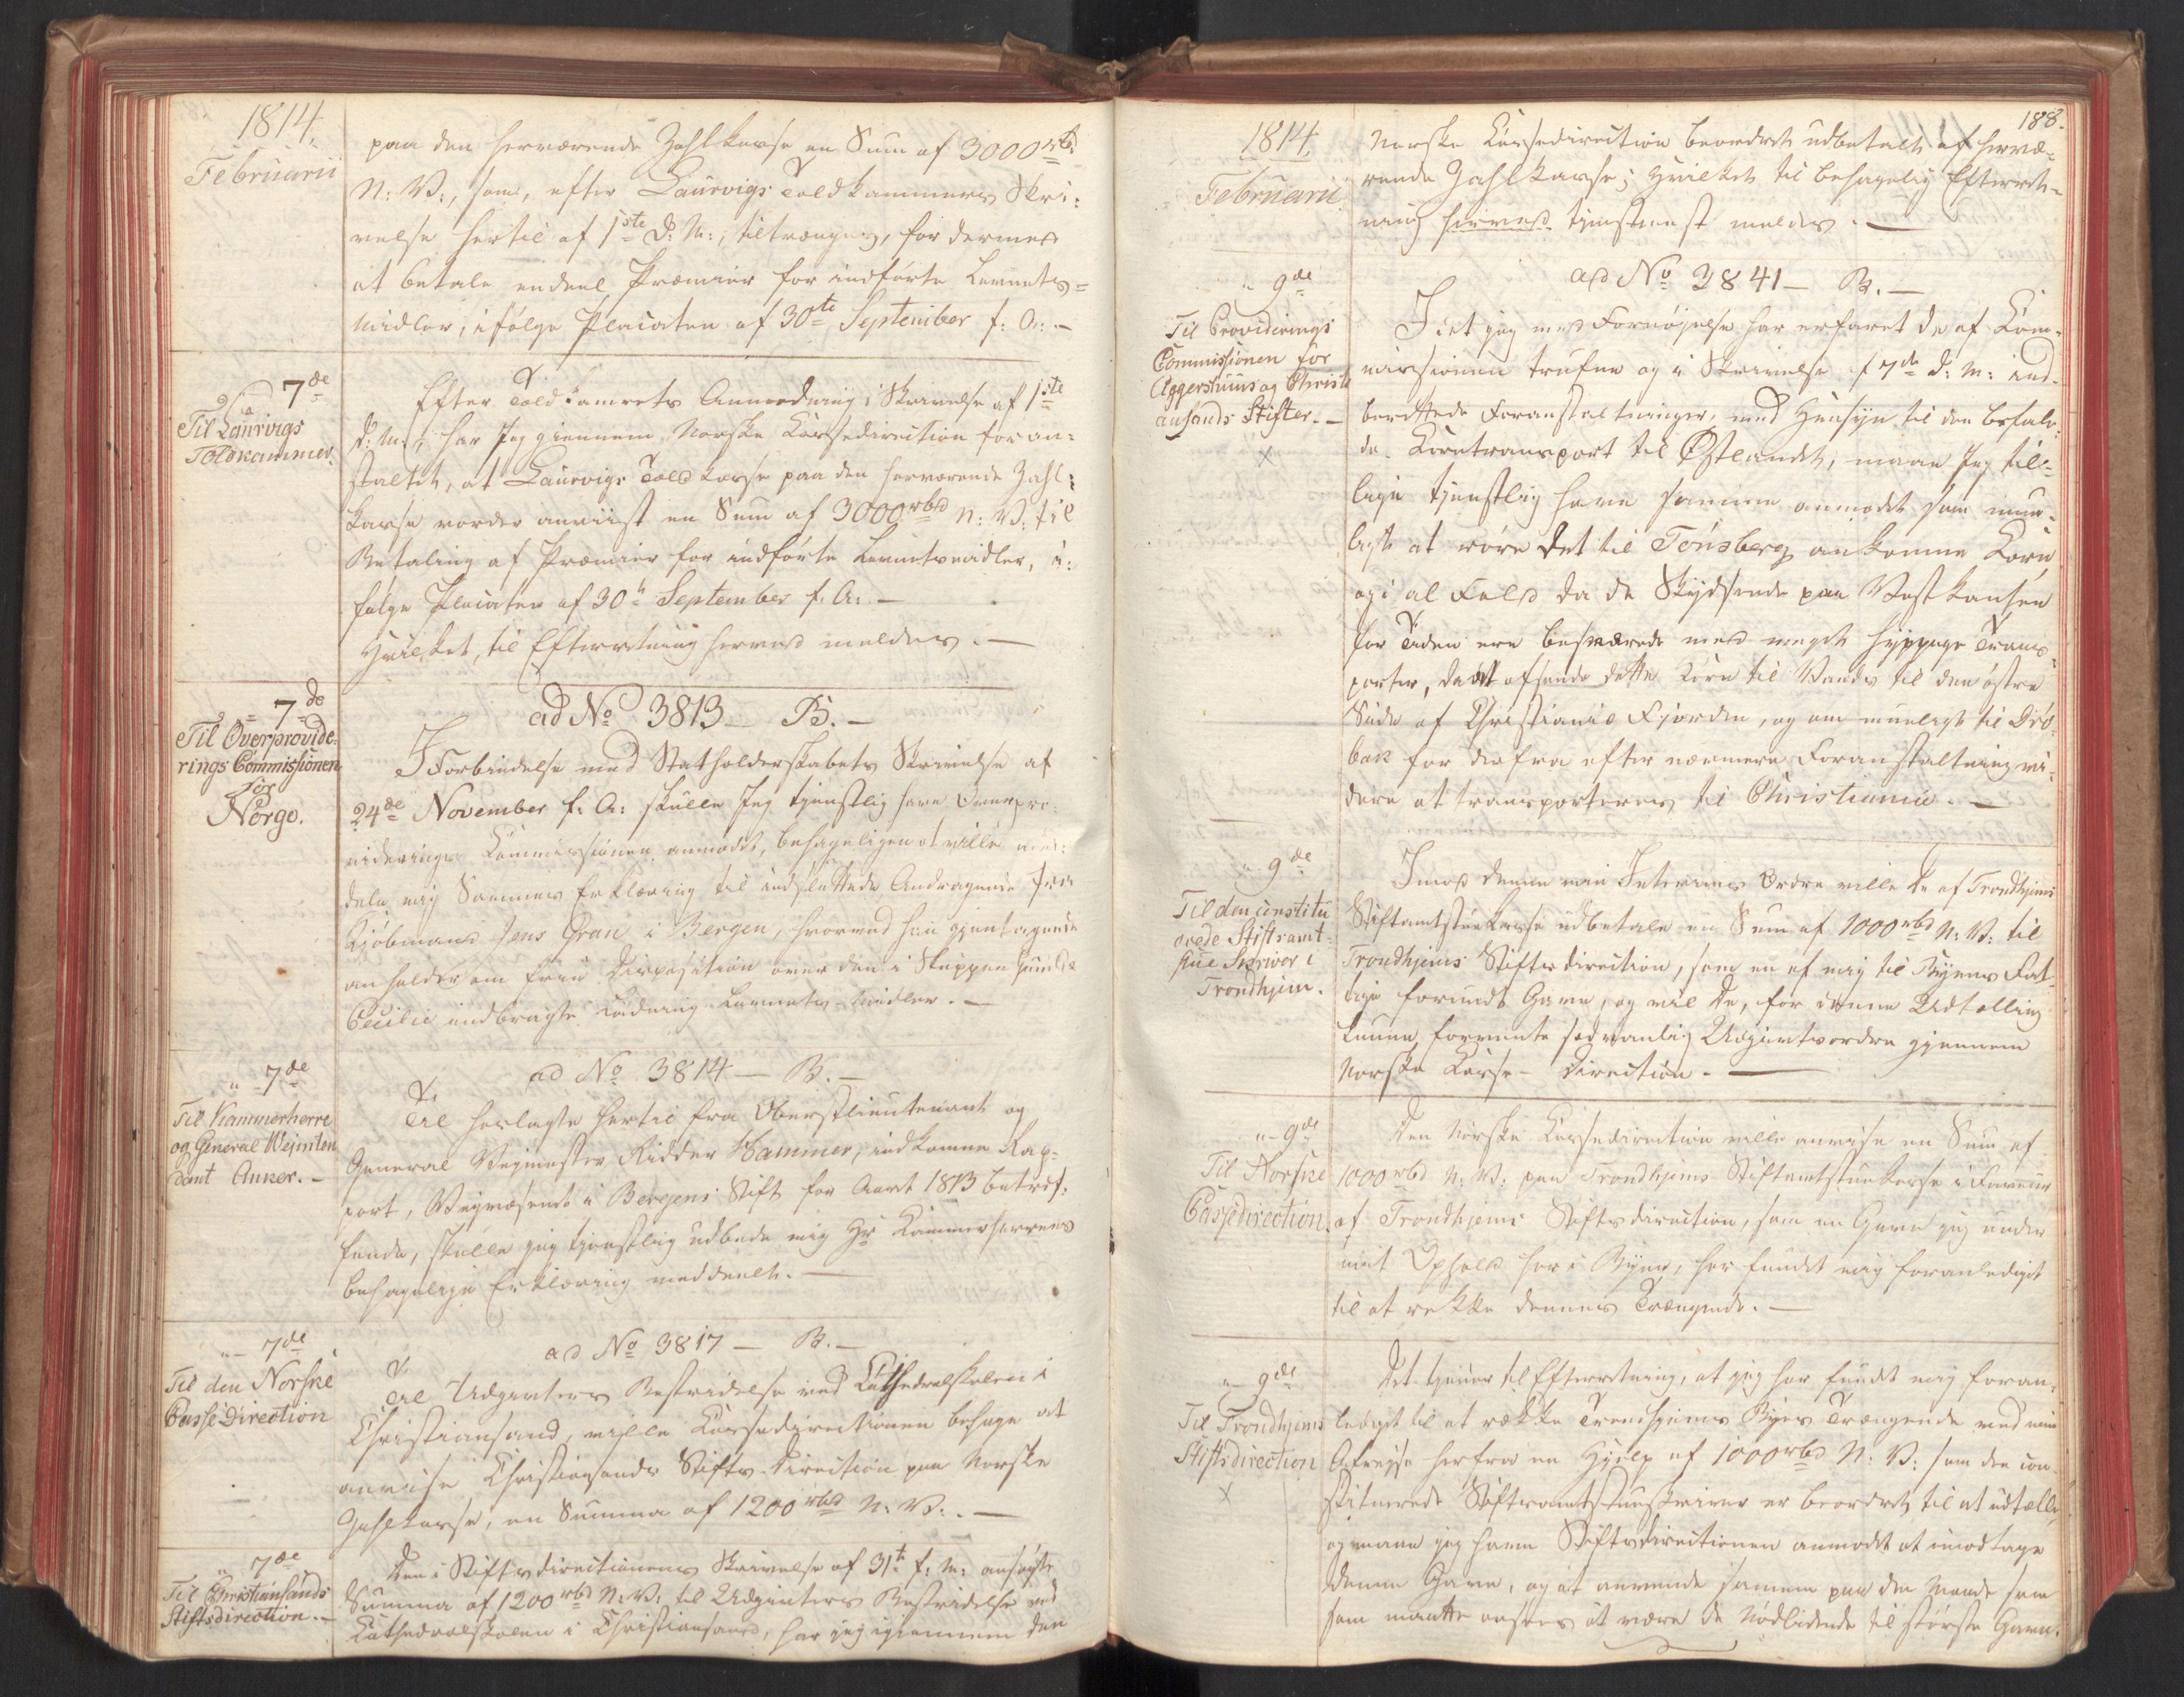 1814.
Februarii
paa den herværende Zahlkasse en Sum af 3000 rbd
N: V:, som, efter Laurvigs Toldkammers Skri-
velse hertil af 1ste d: M:, tiltrænges, for dermed
at betale endeel Præmier for indførte Levnets-
midler, ifølge Placaten af 30te September f: A: -
7de
Til Laurvigs
Toldkammer.
Efter Toldkamrets Anmodning i Skrivelse af 1ste
d: M:, har Jeg giennem Norske Cassedirection foran-
staltet, at Laurvigs Toldkasse paa den herværende Zahl-
kasse vorder anviist en Sum af 3000 rbd N: V: til
Betaling af Præmier for indførte Levnetsmidler, i-
følge Placaten af 30te September f. A: -
Hvilket, til Efterretning herved meldes. -
7de
Til Overprovide-
rings Commissionen
for
Norge.
ad No 3813 - B. -
I Forbindelse med Statholderskabets Skrivelse af
24de November f: A: skulde Jeg tjenstlig have Overpro-
viderings Commissionen anmodet, behageligen at ville med-
dele mig Sammes Erklæring til indsluttede Andragende fra
Kjøbmand Jens Gran i Bergen, hvorved han gjentagende
anholder om friie Disposition over den i Skuppen
Cecilie indbragte Ladning Levnets-Midler. -
" 7de
Til Kammerherre
og General Vejinten
dant Anker. -
ad No 3814 - B. -
Til herlagte hertil fra Oberstlieutenant og
General Vejmester Ridder Hammer, indkomne Rap-
port, Vejvæsenet i Bergens Stift for Aaret 1813 betref-
fende, skulle jeg tjenstlig udbede mig Hr Kammerherrens
behagelige Erklæring meddeelt. -
" 7de
Til den Norske
Casse Direction
ad No 3817 - B. -
Til Udgivters Bestridelse ved Cathedralskolen i
Christiansand, ville Cassedirectionen behage at
anvise Christiansands Stifts-Direction paa Norske
Zahlkasse, en Summa af 1200 rbd N: V: . -
" 7de
Til Christiansands
Stiftsdirection. -
Den i Stiftsdirectionens Skrivelse af 31te f: M: ansøgte
Summa af 1200 rbd N: V: til Udgivters Bestridelse ved
Cathedralskolen i Christiansand, har jeg igiennem den
188.
1814.
Februarii
Norske Cassedirection beordret udbetalt af hervæ-
rende Zahlkasse; hvilket til behagelig Efterret-
ning herved tjenstligst meldes. -
" 9de
Til Providerings
Commissionen for
Aggershuus og Christi
ansands Stifter. -
X
ad No 3841 - B. -
Idet jeg med Fornøjelse har erfaret de af Com-
missionen trufne og i Skrivelse af 7de d: M: ind-
berettede Foranstaltninger, med Hensyn til den befale-
de Korntransport til Østlandet, maae Jeg til-
lige tjenstlig have samme anmodet som mue-
ligt at røre det til Tønsberg ankomne Korn
og i al Fald da de Skydsende paa Vestkanten
for Tiden ere besværede med meget hyppige Trans-
porter, da at afsende dette Korn til Vands til den østre
Side af Christianie Fjorden, og om mueligt til Drø-
bak for derfra efter nærmere Foranstaltning vi-
dere at transporteres til Christiania. -
" 9de
Til den constitu
erede Stiftsamt-
stue Skriver i
Trondhjem.
Imod denne min Interims Ordre ville De af Trondhjems
Stiftamtstuekasse udbetale en Sum af 1000 rbd N: V: til
Trondhjems Stiftsdirection, som en af mig til Byens Fat-
tige forundt Gave, og vil De, for denne Udtælling
kunne forvente sædvanlig Udgivtsordre gjennem
Norske Casse-Direction. -
" 9de
Til Norske
Cassedirection.
Den Norske Cassedirection ville anvise en Sum af
1000 rbd N: V: paa Trondhjems Stiftamtstuekasse i Faveur
af Trondhjems Stiftsdirection, som en Gave jeg under
mit Ophold her i Byen, har fundet mig foranlediget
til at række dennes Trængende. -
" 9de
Til Trondhjems
Stiftsdirection
X
Det tjener til Efterretning, at jeg har fundet mig foran-
lediget til at række Trondhjems Byes Trængende ved min
Afrejse herfra en Hjelp af 1000 rbd N: V: som den con-
stituerede Stiftsamtstueskriver er beordret til at udtælle,
og maae jeg have Stiftsdirectionen anmodet at imodtage
denne Gave, og at anvende samme paa den Maade som
som maatte ansees at være de Nødlidende til største Gavn.